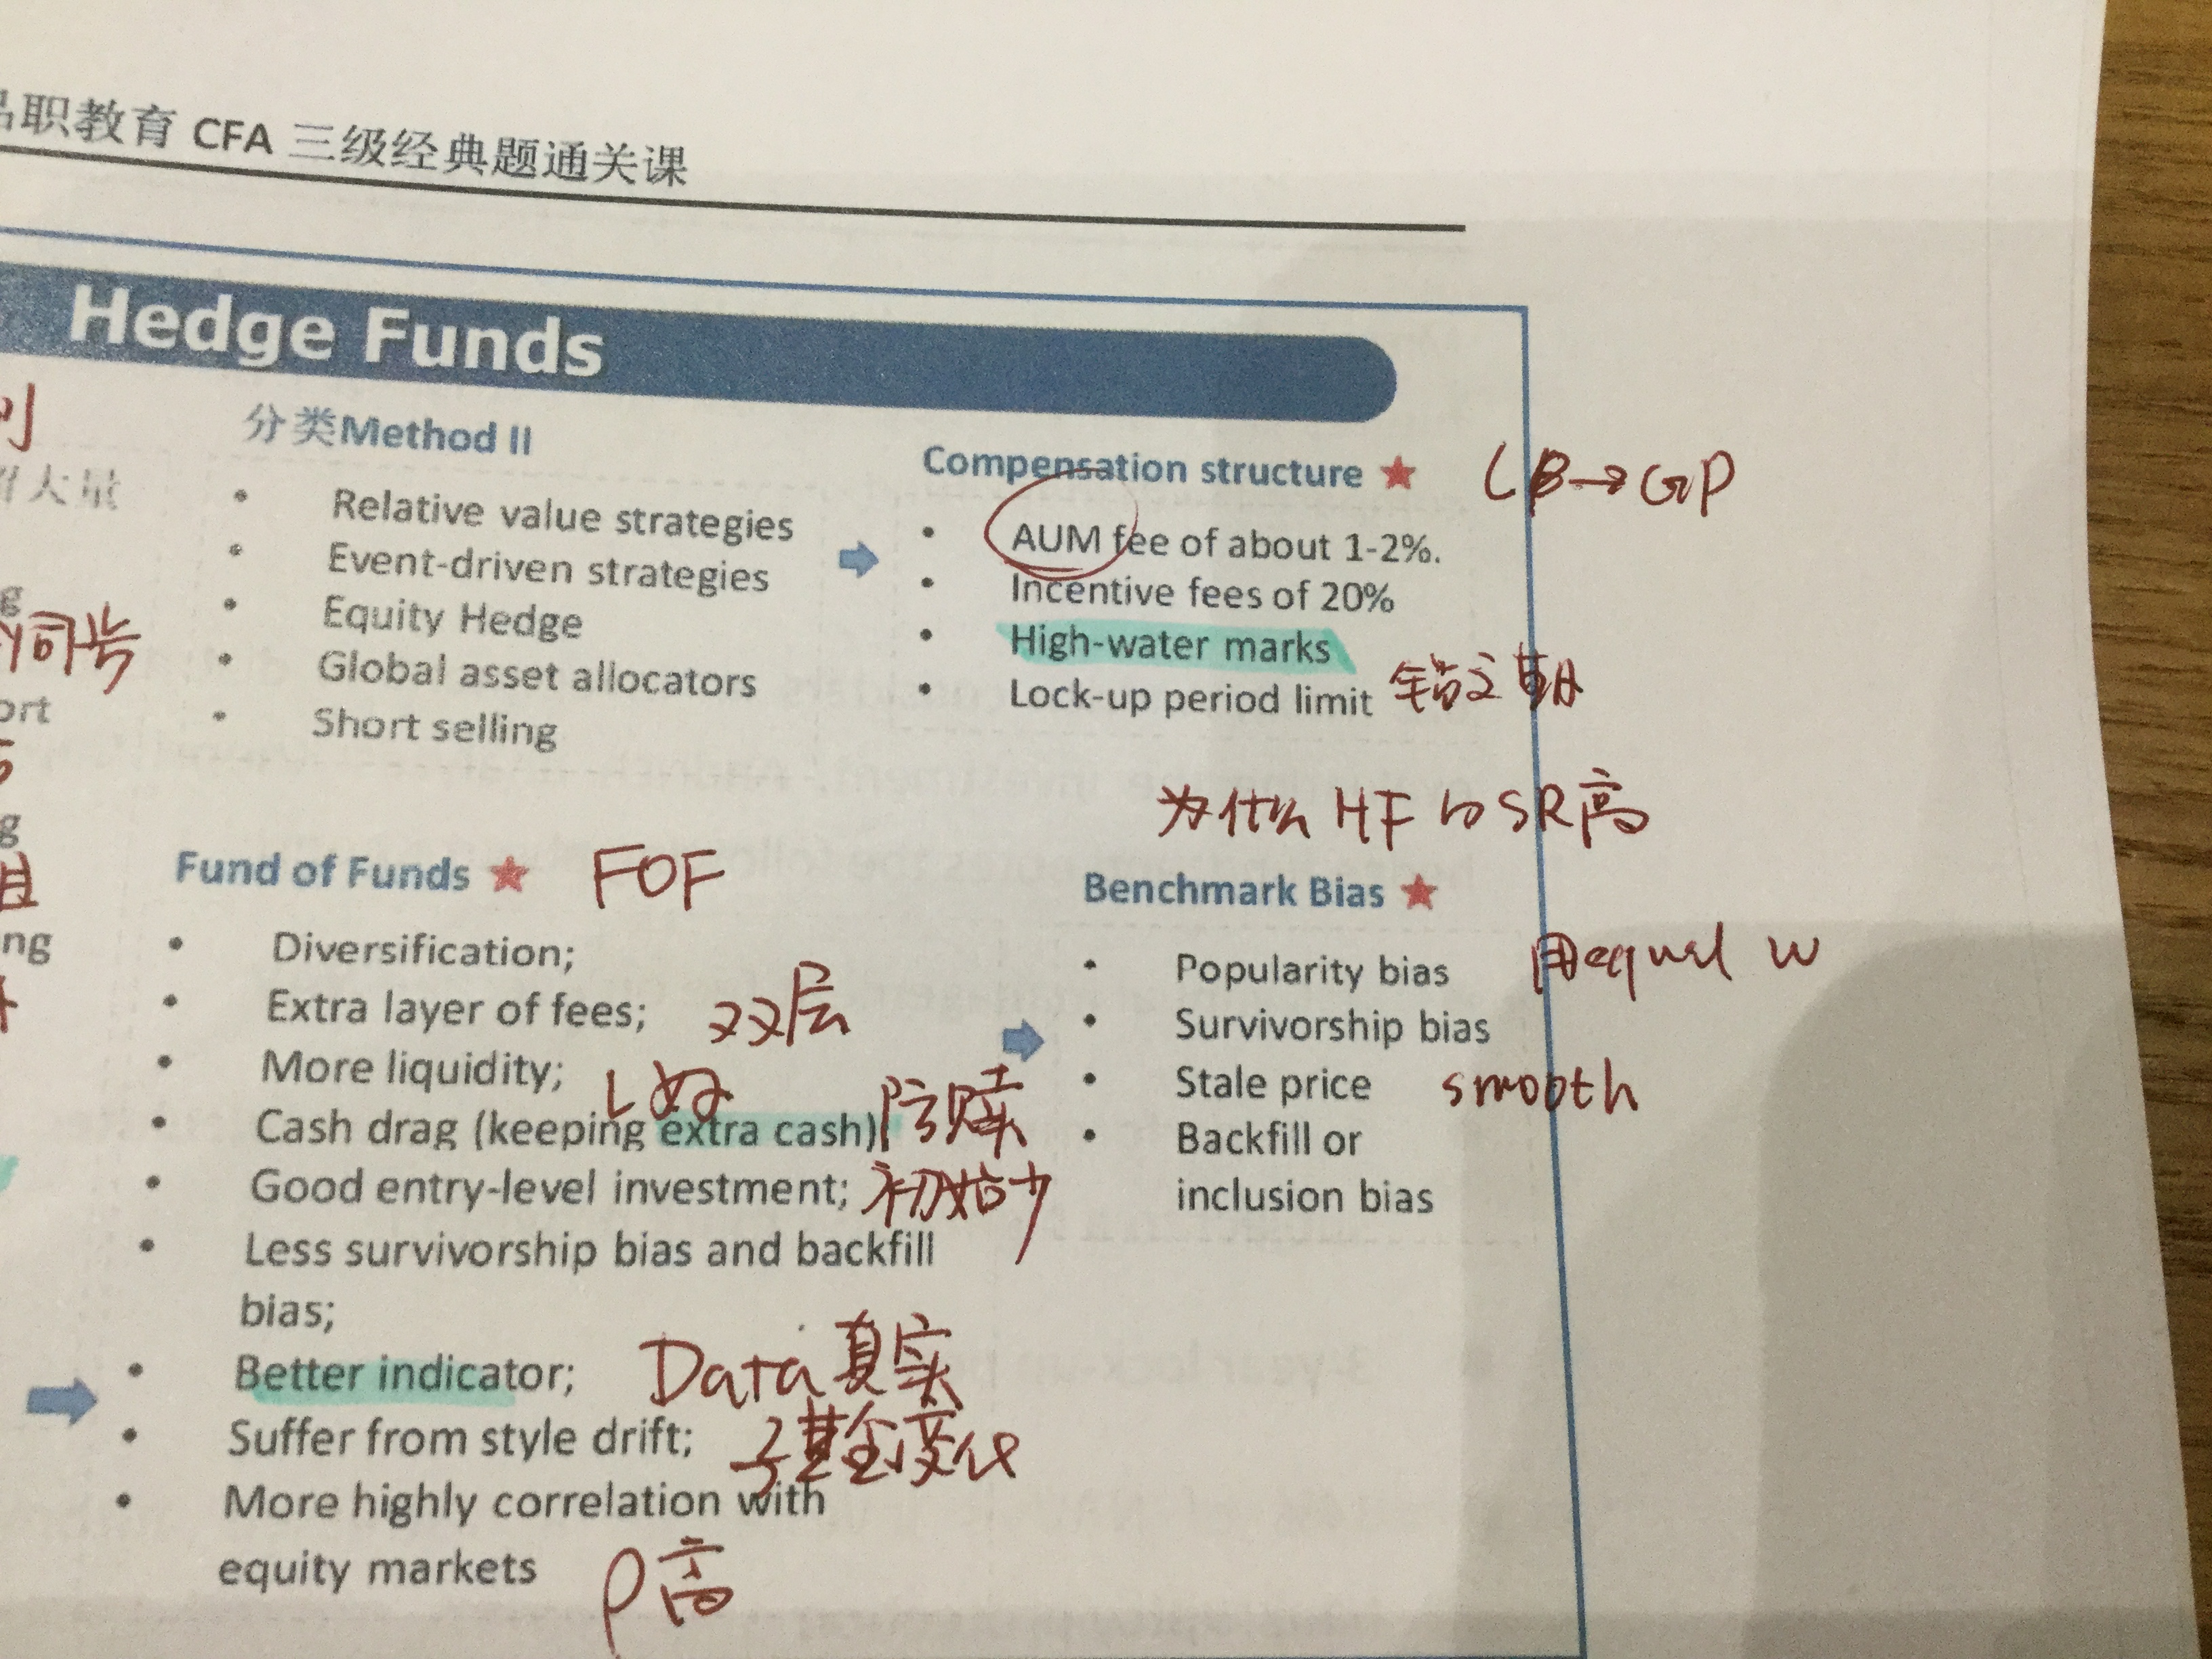 品职教育 CFA 三级经典题通关课
Hedge Funds
大量
g
同号
ort
g
ng
分类Method II
• Relative value strategies
• Event-driven strategies
• Equity Hedge
• Global asset allocators
• Short selling
Compensation structure ★ →GP
• AUM fee of about 1-2%.
• Incentive fees of 20%
• High-water marks
• Lock-up period limit 锁定期
为什么 HF 的SR高
Fund of Funds ★ FOF
• Diversification;
• Extra layer of fees; 双层
• More liquidity; L好
• Cash drag (keeping extra cash) 防赎
• Good entry-level investment; 初始少
• Less survivorship bias and backfill
bias;
• Better indicator; Data真实
• Suffer from style drift; 子基金变化
• More highly correlation with
equity markets ρ高
Benchmark Bias ★
• Popularity bias 用equal w
• Survivorship bias
• Stale price smooth
• Backfill or
inclusion bias